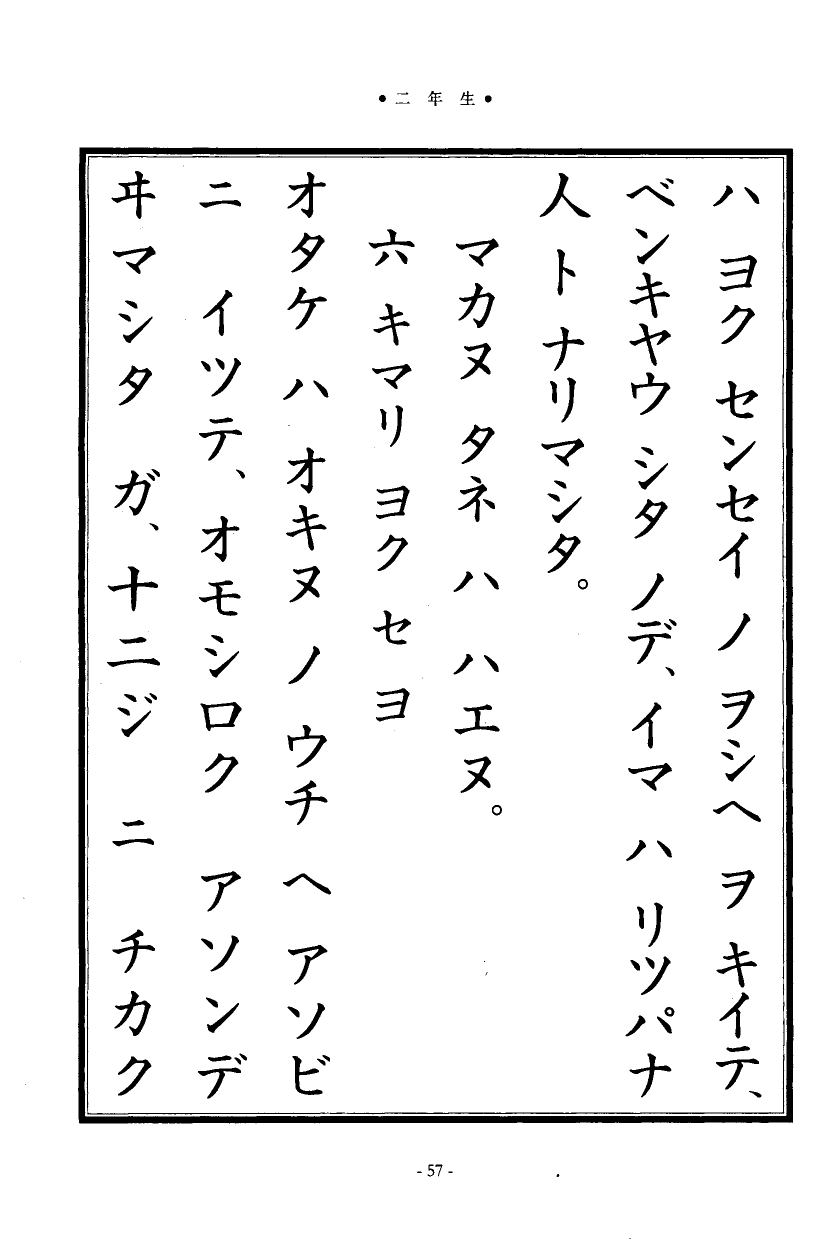 ●二年生●
ハ ヨク センセイ ノ ヲシヘ ヲ キイテ、
ベンキヤウ シタ ノデ、イマ ハ リツパナ
人 ト ナリマシタ。
マカヌ タネ ハ ハエヌ。
六 キマリ ヨク セヨ
オタケ ハ オキヌ ノ ウチ ヘ アソビ
ニ イツテ、オモシロク アソンデ
ヰマシタ ガ、十二ジ ニ チカク
- 57 -